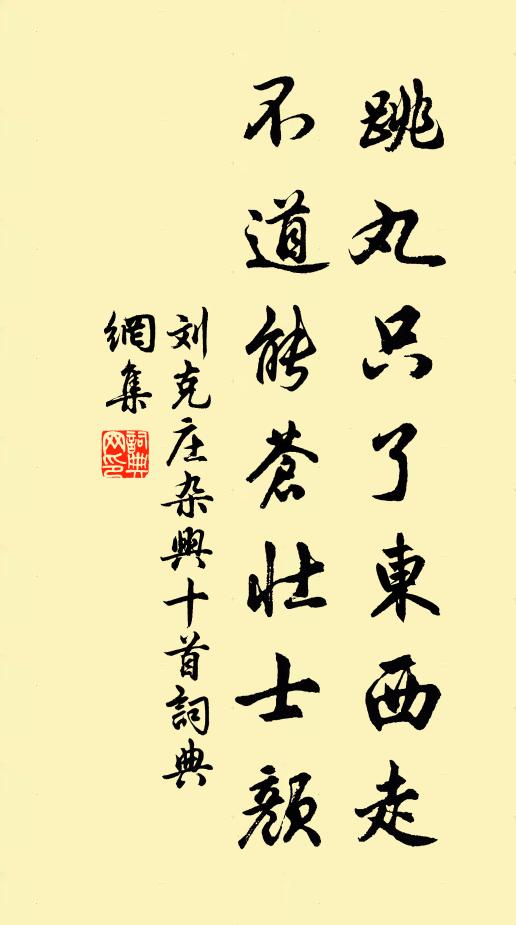 跳丸只了東西走
不道能蒼壯士顏
刘克庄杂興十首詞典
網集
詞典網印